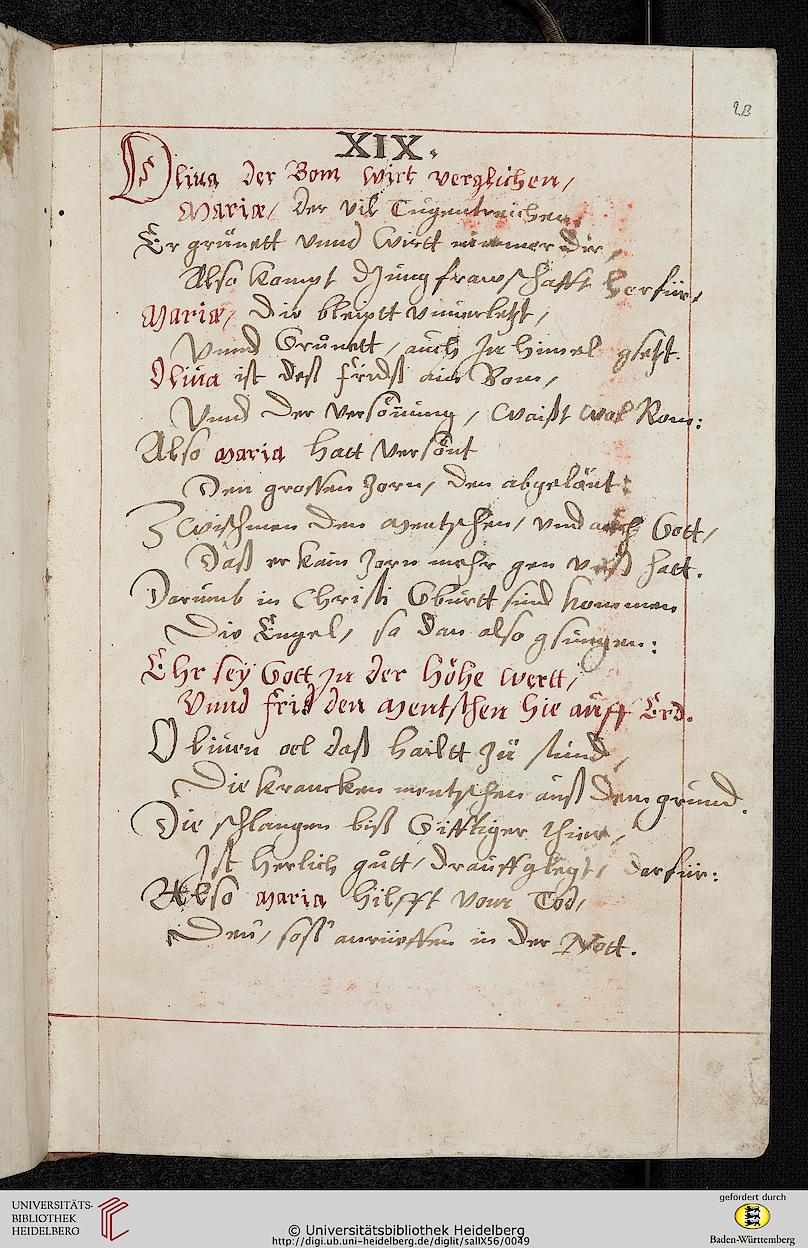 23
XIX.
Oliua der Bom wirt verglichen/
Mariæ/ der vil Tugentreichen
Er grünett vnnd wirtt nimmer dür,
Also kompt d Jungfrawschafft herfür,
Mariæ, die bleiptt vnuerletzt,
Vnnd Grůnett, auch In himel gsetzt.
Oliua ist deß fridß ain Bom,
Vnnd der versönung, waißt wol Rom:
Also Maria hatt versönt
Den grossen Zorn, den abgelönt:
Zwischmen den Mentschen, vnd auch Gott,
Daß er kain Zorn mehr gen vnß hatt.
Darumb in Christi Gburtt sind kommen
Die Engel, so dan also gsungen:
Ehr sey Gott In der höhe wertt,
Vnnd frid den Mentschen hie auff Erd.
Oliuen oel daß hailtt zů stund,
Die krancken mentschen auß dem grund.
Die schlangen biß Gifftiger thier,
Ist herlich gůtt, drauff glegt, darfür:
Also Maria hilfft vom Tod,
Den, soß anrüeffen in der Nott.
UNIVERSITÄTS-
BIBLIOTHEK
HEIDELBERG
© Universitätsbibliothek Heidelberg
http://digi.ub.uni-heidelberg.de/diglit/salIX56/0049
gefördert durch
Baden-Württemberg